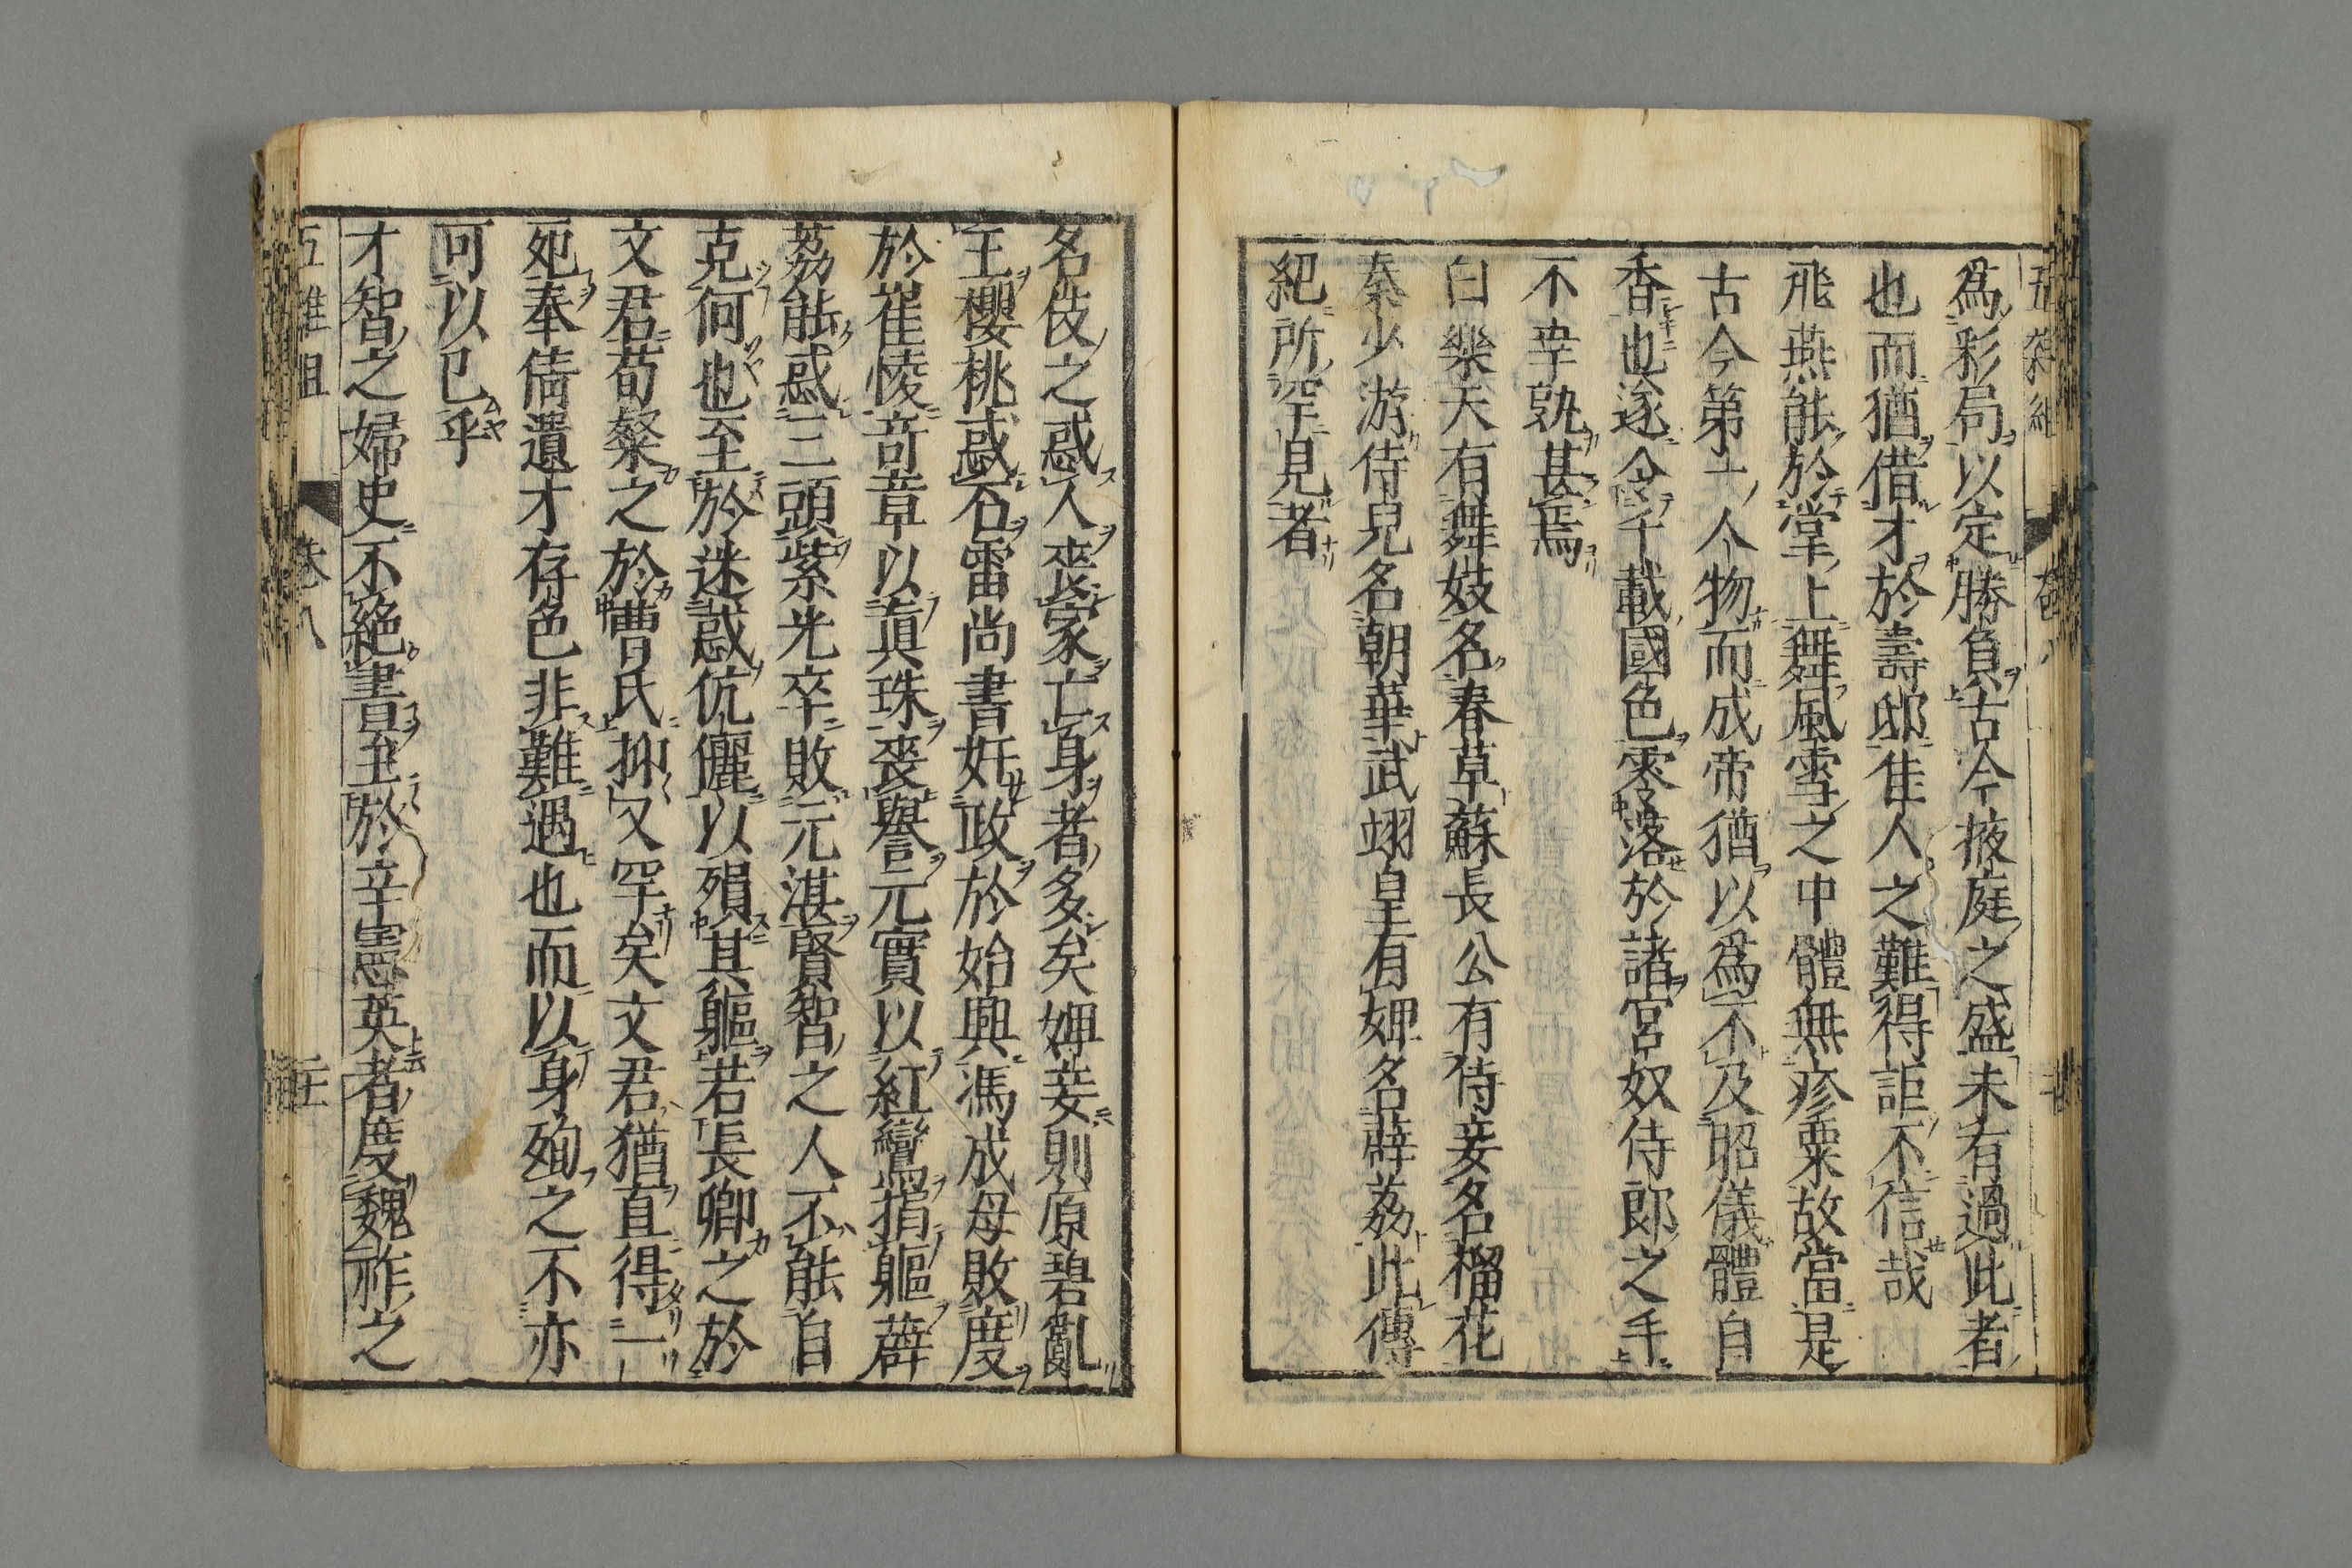 五雜組 卷八
爲彩局以定勝負古今掖庭之盛未有過此者
也而猶借才於壽邸佳人之難得詎不信哉
飛燕能於掌上舞風雪之中體無疹粟故當是
古今第一人物而成帝猶以爲不及昭儀體自
香也遂令千載國色零落於諸宮奴侍郎之手
不幸孰甚焉
白樂天有舞妓名春草蘇長公有侍妾名榴花
秦少游侍兒名朝華武翊皇有婢名薜荔此傳
紀所罕見者
名伎之惑人喪家亡身者多矣婢妾則原碧亂
王櫻桃惑石雷尚書奸政於始興馮成母敗度
於崔悛竒章以眞珠喪譽元實以紅鸞捐軀薜
荔能惑三頭紫光卒敗元湛賢智之人不能自
克何也至於迷惑伉儷以殞其軀若長卿之於
文君荀粲之於曹氏抑又罕矣文君猶直得一
死奉倩遺才存色非難遇也而以身殉之不亦
可以已乎
才智之婦史不絕書至於辛憲英者度魏祚之
五雜組 卷八